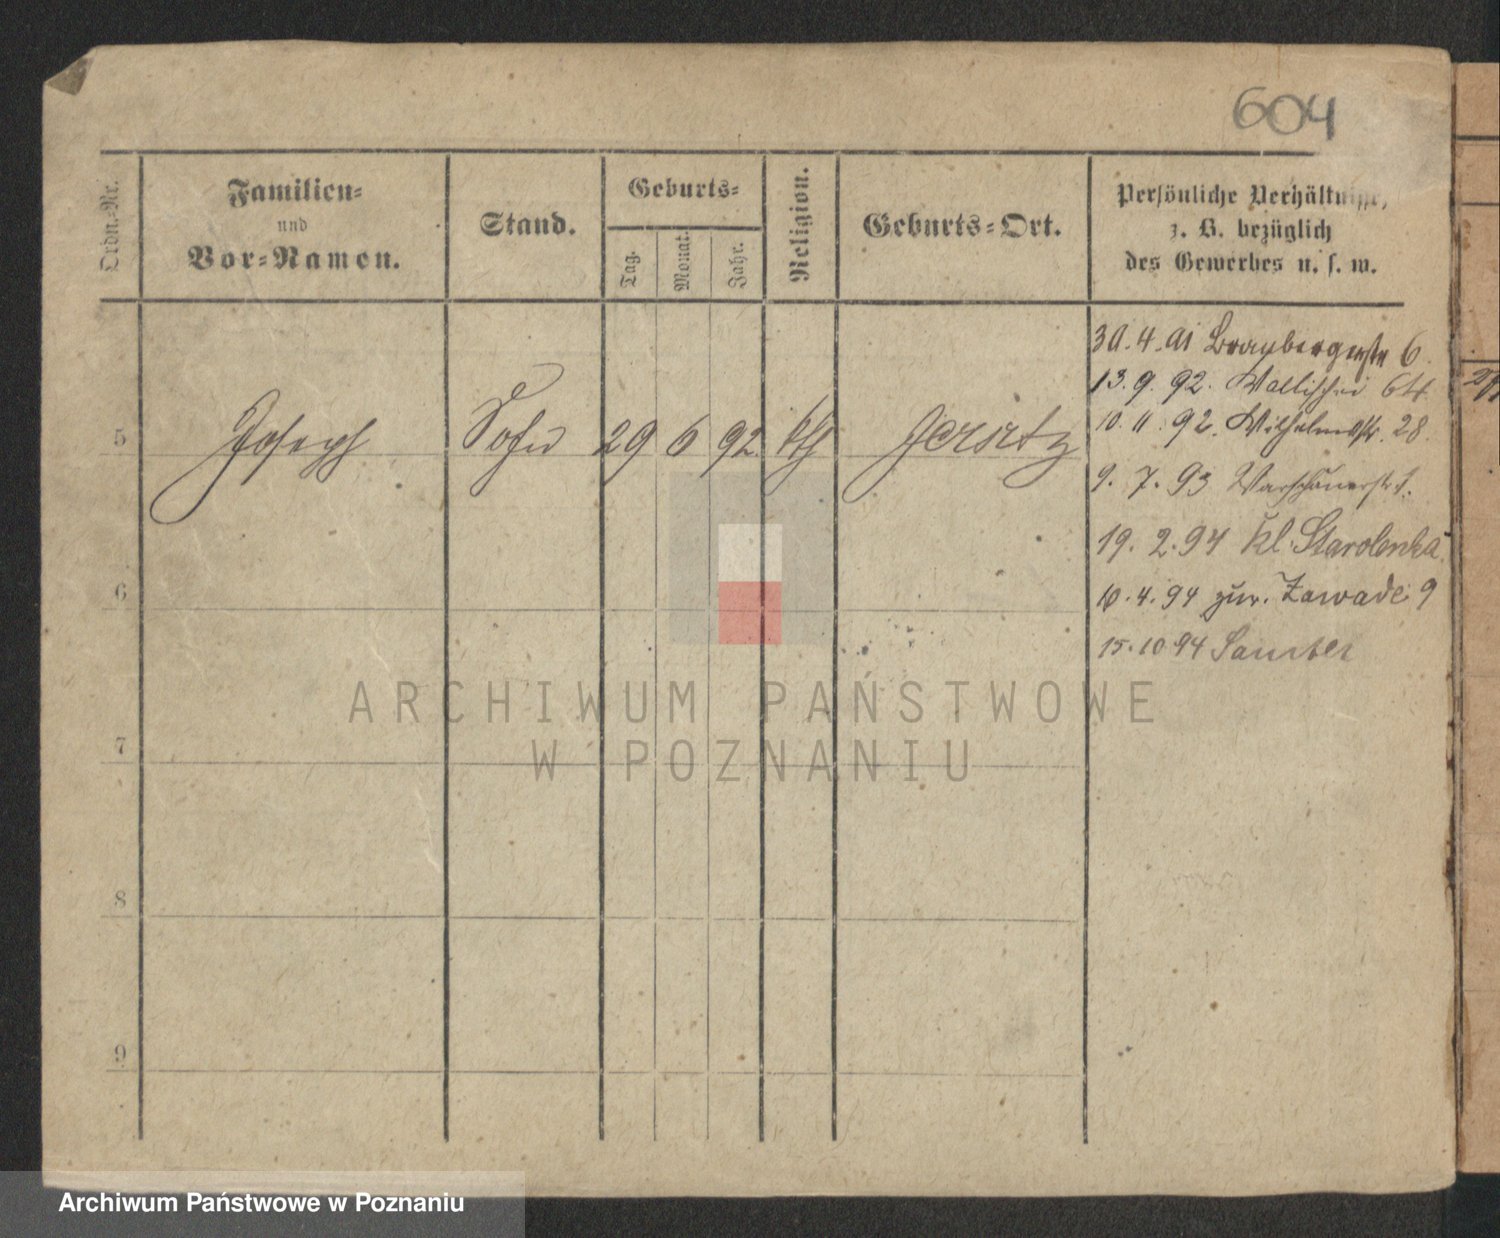 604
Ordn.-Nr.
Familien-
und
Vor-Namen.
Stand.
Geburts-
Tag.
Monat.
Jahr.
Religion.
Geburts-Ort.
Persönliche Verhältnisse,
z. B. bezüglich
des Gewerbes u. s. w.
30.4.91 6.
13.9.92. Wallischei 64
10.11.92. Wilhelmstr. 28.
5 Joseph Sohn 29 6 92 kth Jersitz
9.7.93 Warschauerstr 1.
19.2.94 Kl. Starolenka
6
10.4.94 zur. Zawade 9
15.10 94 Samter
ARCHIWUM PAŃSTWOWE
W POZNANIU
7
8
9
Archiwum Państwowe w Poznaniu